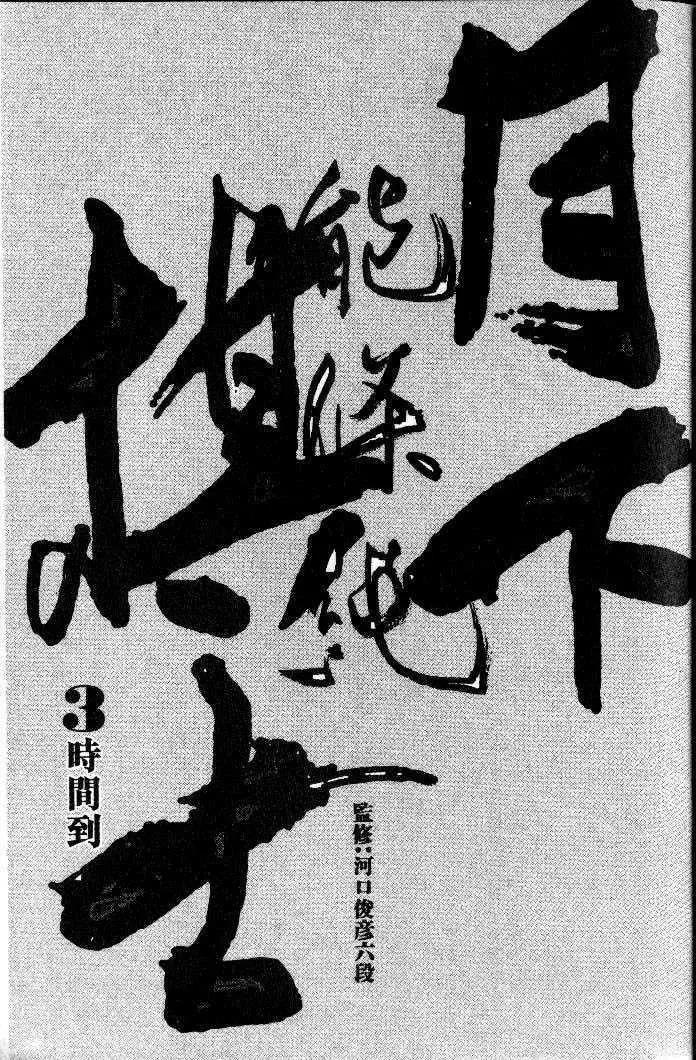 月下
棋士
能條純一
監修:河口俊彦六段
3 時間到